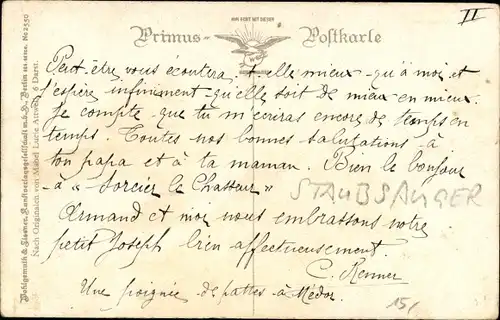 II
AUS FEST MIT DIESER
Primus-Postkarte
Wohlgemuth & Lissner, Kunstverlagsgesellschaft m.b.H. Berlin No 2550
Nach Originalen von Mabel Lucie Attwell, 6 Darst.
Peut-être vous écoutera-t-elle mieux qu'à moi et
j'espère infiniment qu'elle soit de mieux en mieux.
Je compte que tu m'écriras encore de temps en
temps. Toutes nos bonnes salutations à
ton papa et à ta maman. Bien le bonjour
à "Sorcier le Chasseur"
STAUBSAUGER
Armand et moi nous embrassons notre
petit Joseph bien affectueusement.
C. Renner
Une poignée de pattes à Médor.
15/